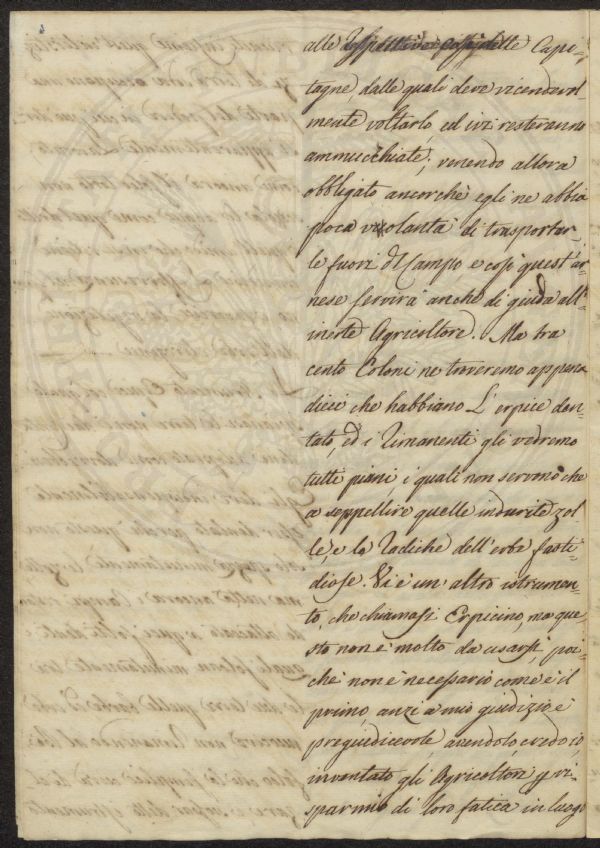 alle rispettive cossi delle Capi-
tagne, dalle quali deve vicendevol-
mente voltarlo, ed ivi resteranno
ammucchiate; venendo allora
obbligato ancorchè egli ne abbia
poca volontà di trasportar-
le fuori del Campo e così quest'ar-
nese servirà anche di guida all'
inerte Agricoltore. Ma tra
cento Coloni ne troveremo appena
dieci che habbiano L'erpice den-
tato, ed i rimanenti gli vedremo
tutti piani, i quali non servono che
a seppellire quelle indurite zol-
le, e le radiche dell'erbe fasti-
diose. Vi è un'altro istrumen-
to, che chiamasi Erpicino, ma que-
sto non è molto da usarsi, poi-
chè non è necessario come è il
primo, anzi a mio giudizio è
pregiudicevole avendolo, credo io,
inventato gli Agricoltori p ri-
sparmio di loro fatica in luogo